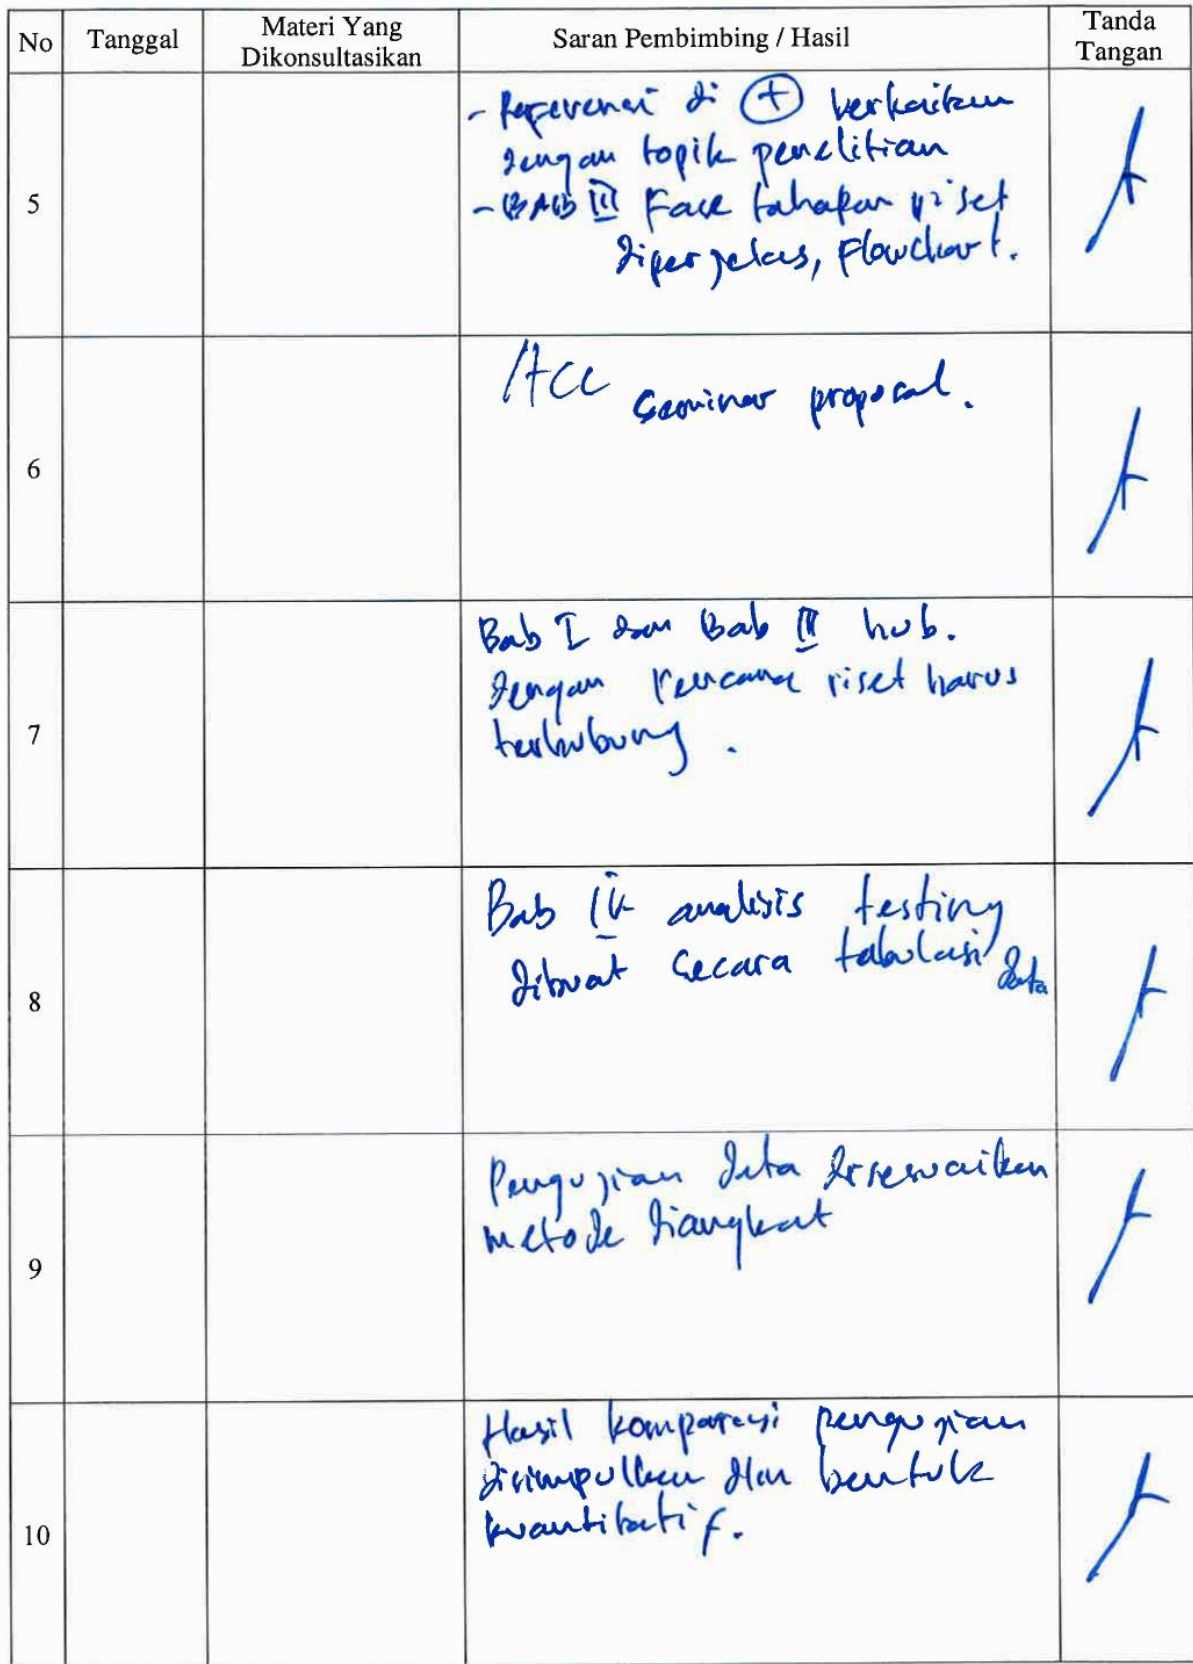 No Tanggal Materi Yang Dikonsultasikan Saran Pembimbing / Hasil Tanda Tangan
5
- Referensi di (+) berkaitan
dengan topik penelitian
- BAB III Fase tahapan riset
diperjelas, Flowchart.
6
Acc seminar proposal.
7
Bab I dan Bab III hub.
dengan rencana riset harus
terhubung.
8
Bab IV analisis testing
dibuat secara tabulasi data
9
Pengujian data disesuaikan
metode diangkat
10
Hasil komparasi pengujian
disimpulkan dlm bentuk
kuantitatif.